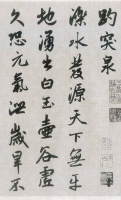 趵突泉
濼水發源天下無平
地湧出白玉壺谷虛
久恐元氣洩歲旱不